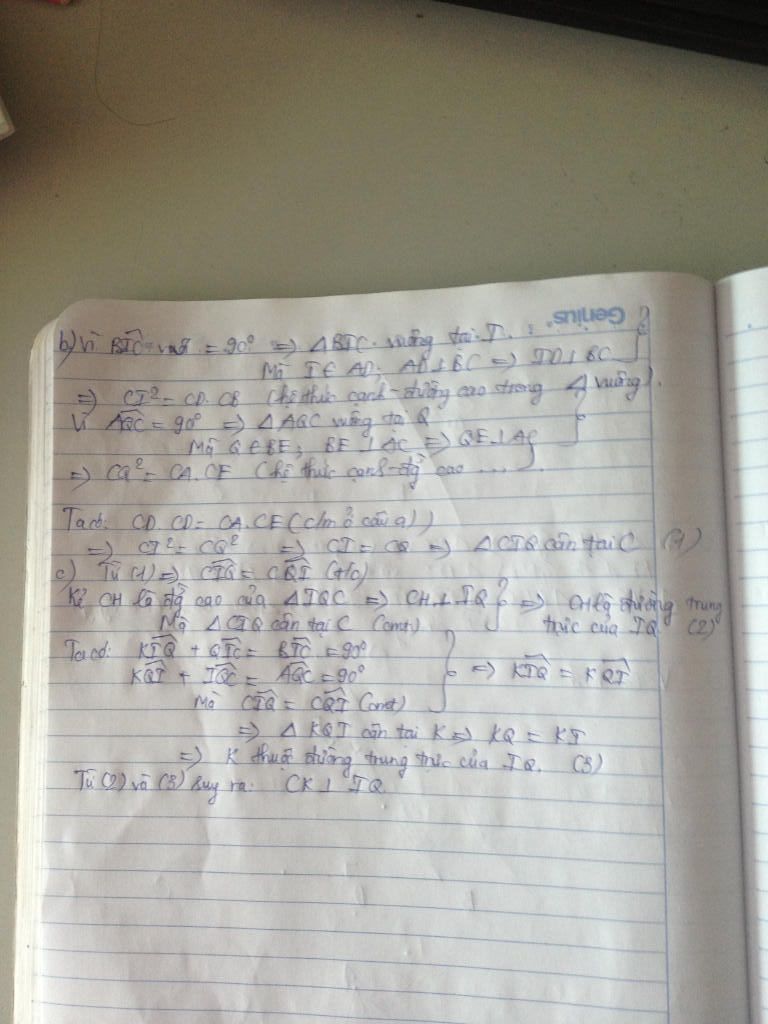 Genius.
b) Vì BIC = 90° => ΔBIC vuông tại I.
Mà I ∈ AD; AD ⊥ BC => ID ⊥ BC
=> CI² = CD.CB (hệ thức cạnh - đường cao trong Δ vuông).
Vì AQC = 90° => ΔAQC vuông tại Q
Mà Q ∈ BE; BE ⊥ AC => QE ⊥ AC
=> CQ² = CA.CE (hệ thức cạnh - đg cao ....
Ta có: CD.CD = CA.CE (c/m ở câu a))
=> CI² = CQ² => CI = CQ => ΔCIQ cân tại C (1)
c) Từ (1) => CIQ = CQI (t/c)
Kẻ CH là đg cao của ΔIQC => CH ⊥ IQ } => CH là đường trung
Mà ΔCIQ cân tại C (cmt) trực của IQ (2)
Ta có: KIQ + QIC = BIC = 90°
KQI + IQC = AQC = 90° => KIQ = KQI
Mà CIQ = CQI (cmt)
=> Δ KQI cân tại K => KQ = KI
=> K thuộc đường trung trực của IQ. (3)
Từ (2) và (3) suy ra: CK ⊥ IQ.